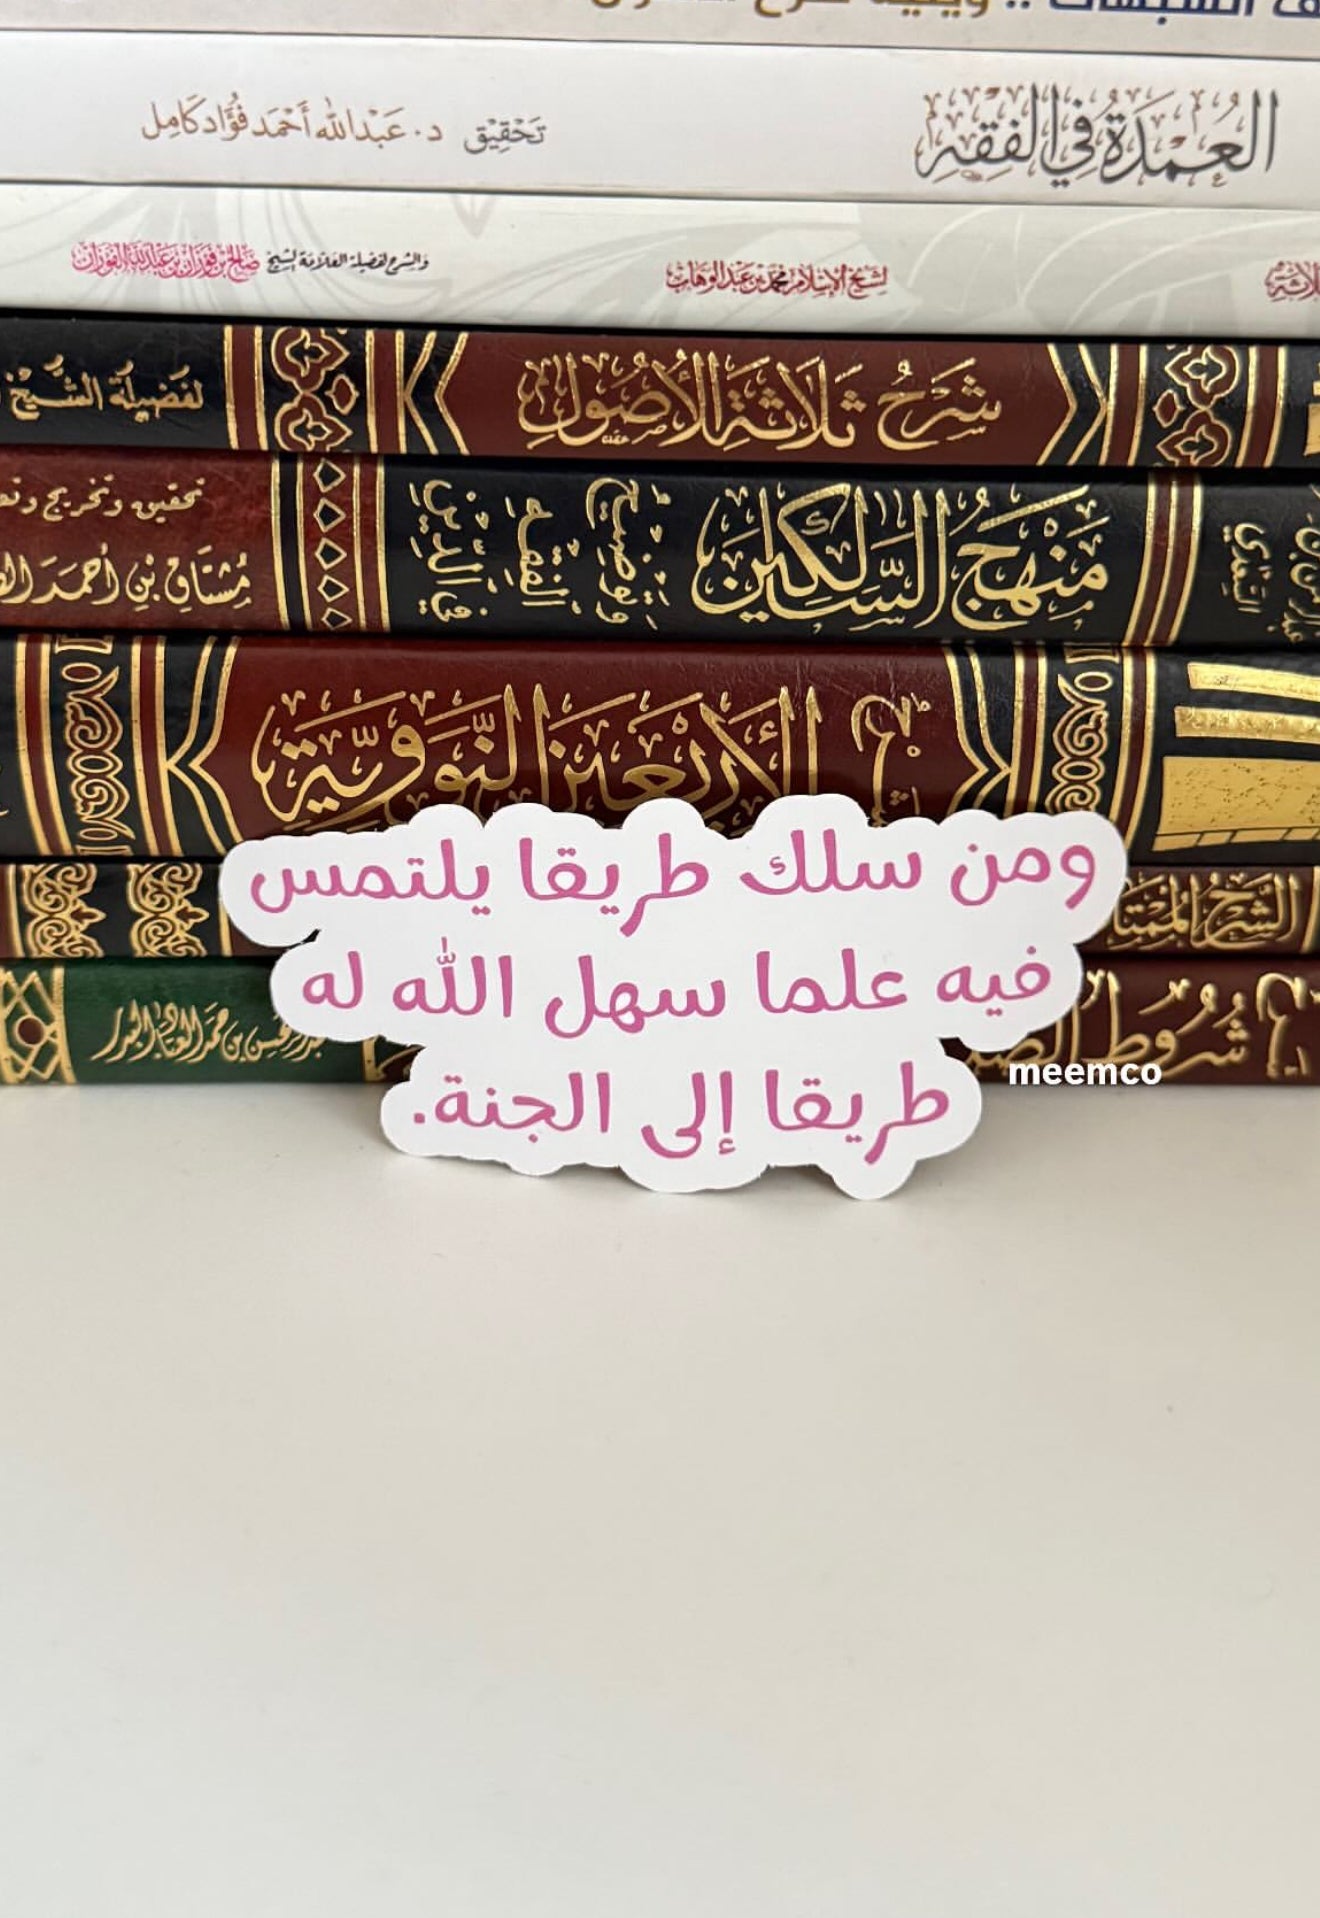 العُمْدَةُ فِي الْفِقْهِ
تَحْقِيْق د. عَبْدالله أَحْمَد فُؤَاد كَامِل
لشيخ الإسلام محمد بن عبدالوهاب
والشرح لفضيلة العلامة الشيخ صالح بن فوزان بن عبدالله الفوزان
شَرْحُ ثَلَاثَةِ الْأُصُولِ
لفَضِيلَة الشَّيْخ
السَّعْدِي
مَنْهَجُ السَّالِكِينَ
وَتَوْضِيحُ
الْفِقْهِ
فِي الدِّيْنِ
تحقيق وتخريج
مُشتَاق بْن أَحمَد
شَرْحُ الأَرْبَعِينَ النَّوَوِيَّةِ
الشَّرْحُ
شَرْحُ شُرُوطِ
بن حمد العباد البدر
ومن سلك طريقا يلتمس
فيه علما سهل الله له
طريقا إلى الجنة.
meemco